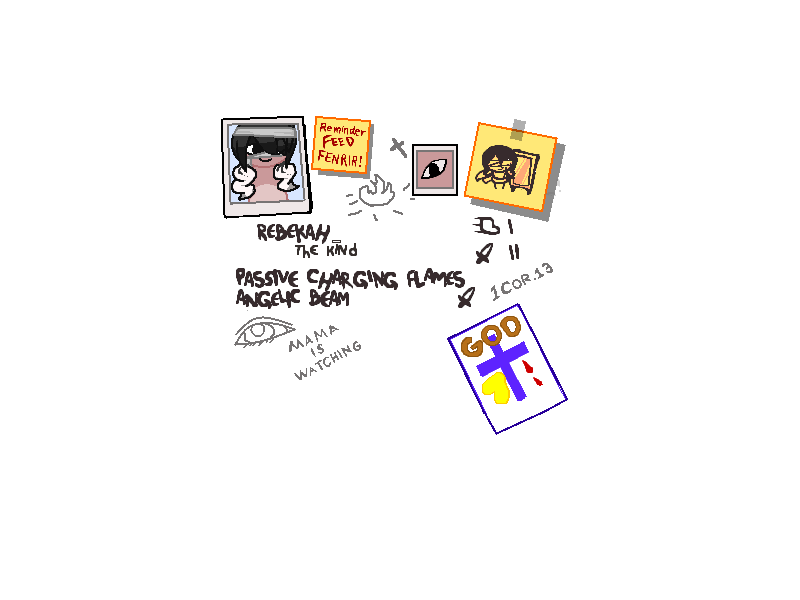 Reminder
FEED
FENRIR!
REBEKAH
THE KIND
PASSIVE CHARGING FLAMES
ANGELIC BEAM
I
II
1COR.13
MAMA
IS
WATCHING
GOD